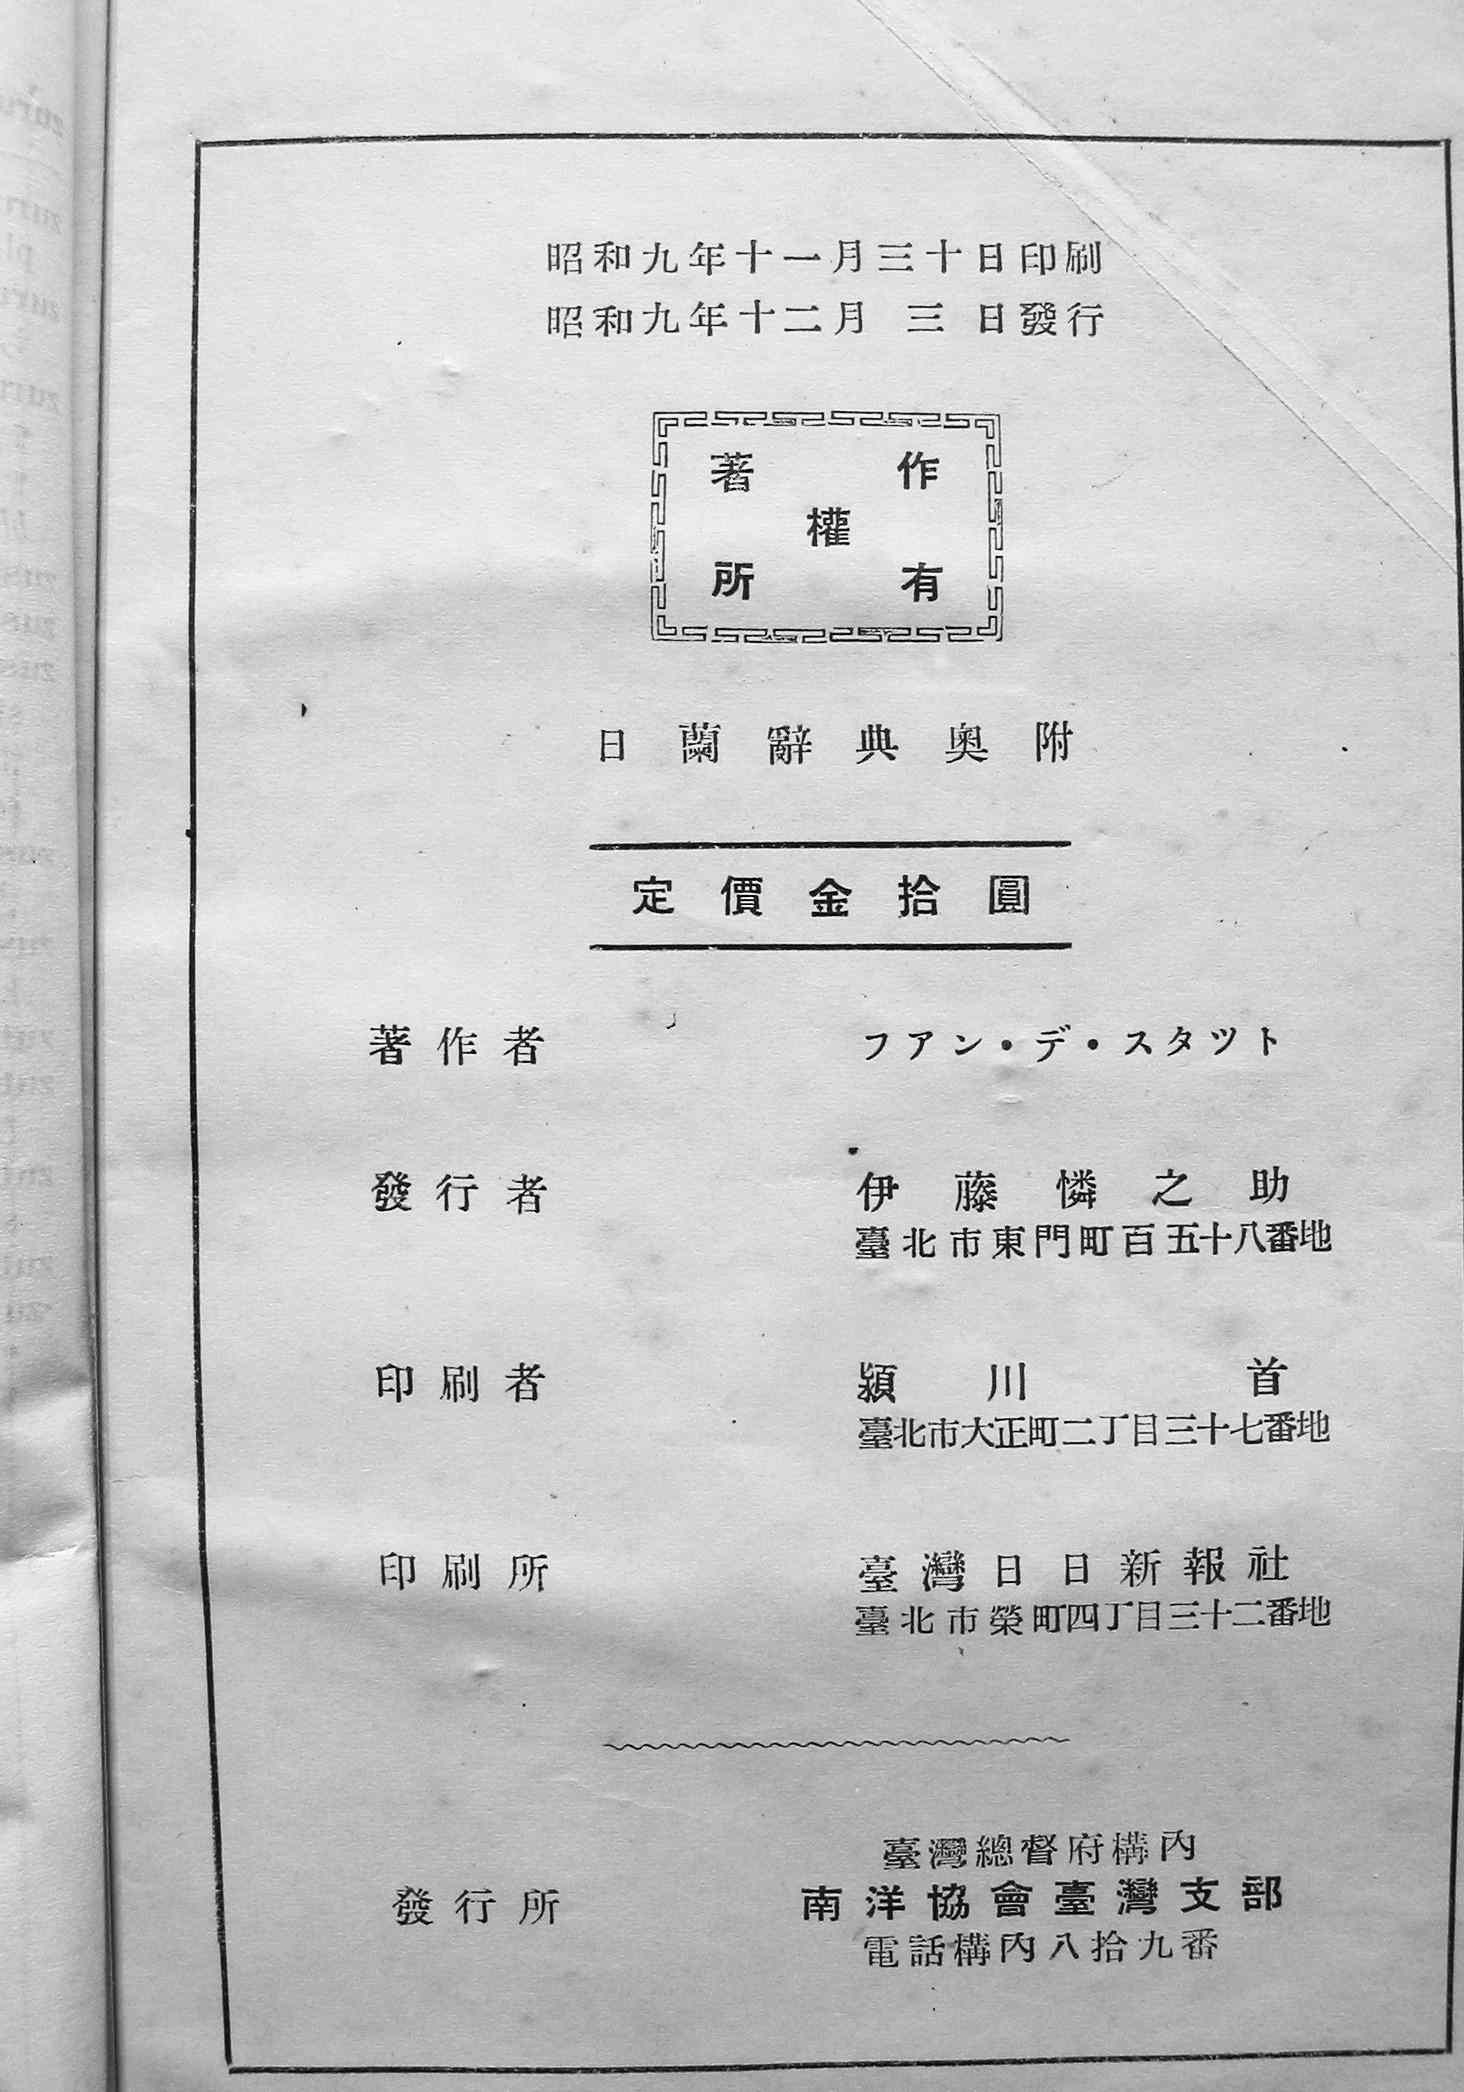 昭和九年十一月三十日印刷
昭和九年十二月三日發行
著作
權
所有
日蘭辭典奥附
定價金拾圓
著作者 フアン・デ・スタツト
發行者 伊藤憐之助
臺北市東門町百五十八番地
印刷者 潁川首
臺北市大正町二丁目三十七番地
印刷所 臺灣日日新報社
臺北市榮町四丁目三十二番地
臺灣總督府構内
發行所 南洋協會臺灣支部
電話構内八拾九番